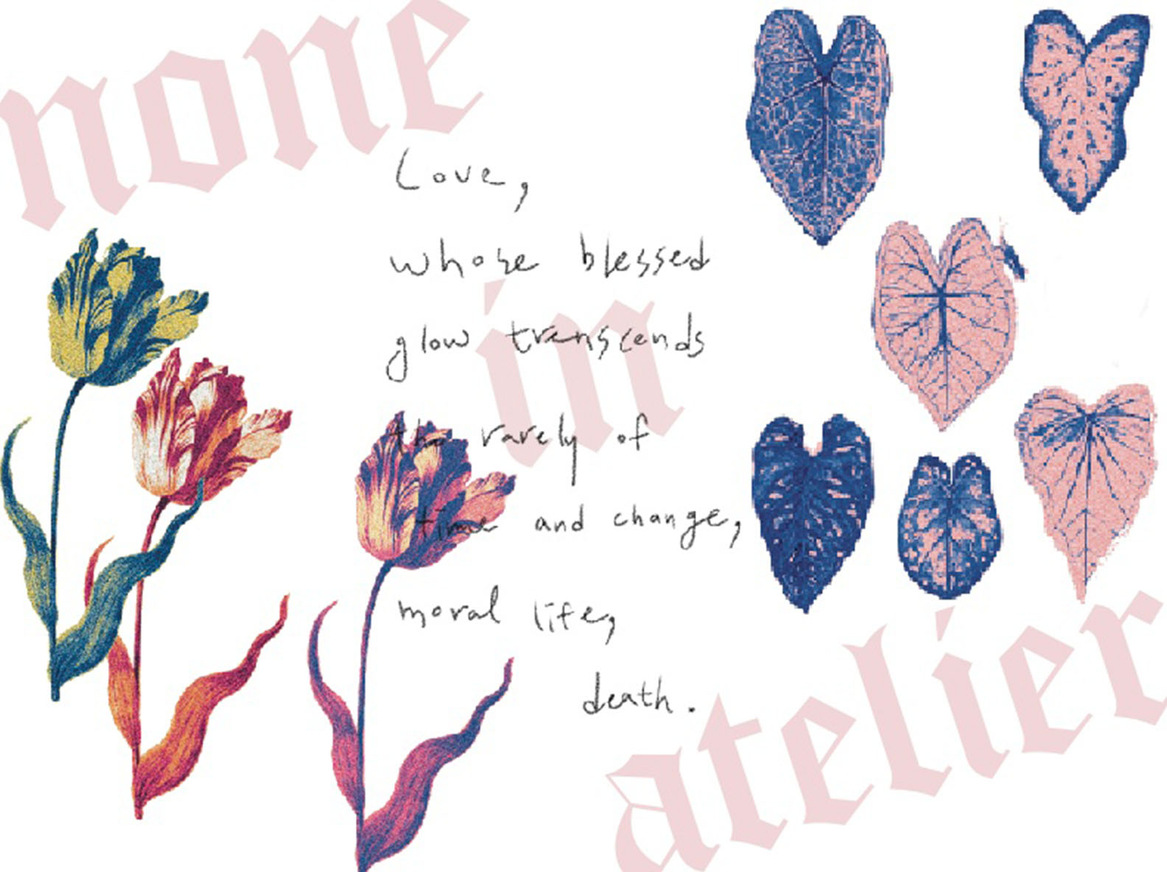 none
in
atelier
Love,
whose blessed
glow transcends
the rarely of
time and change,
moral life,
death.